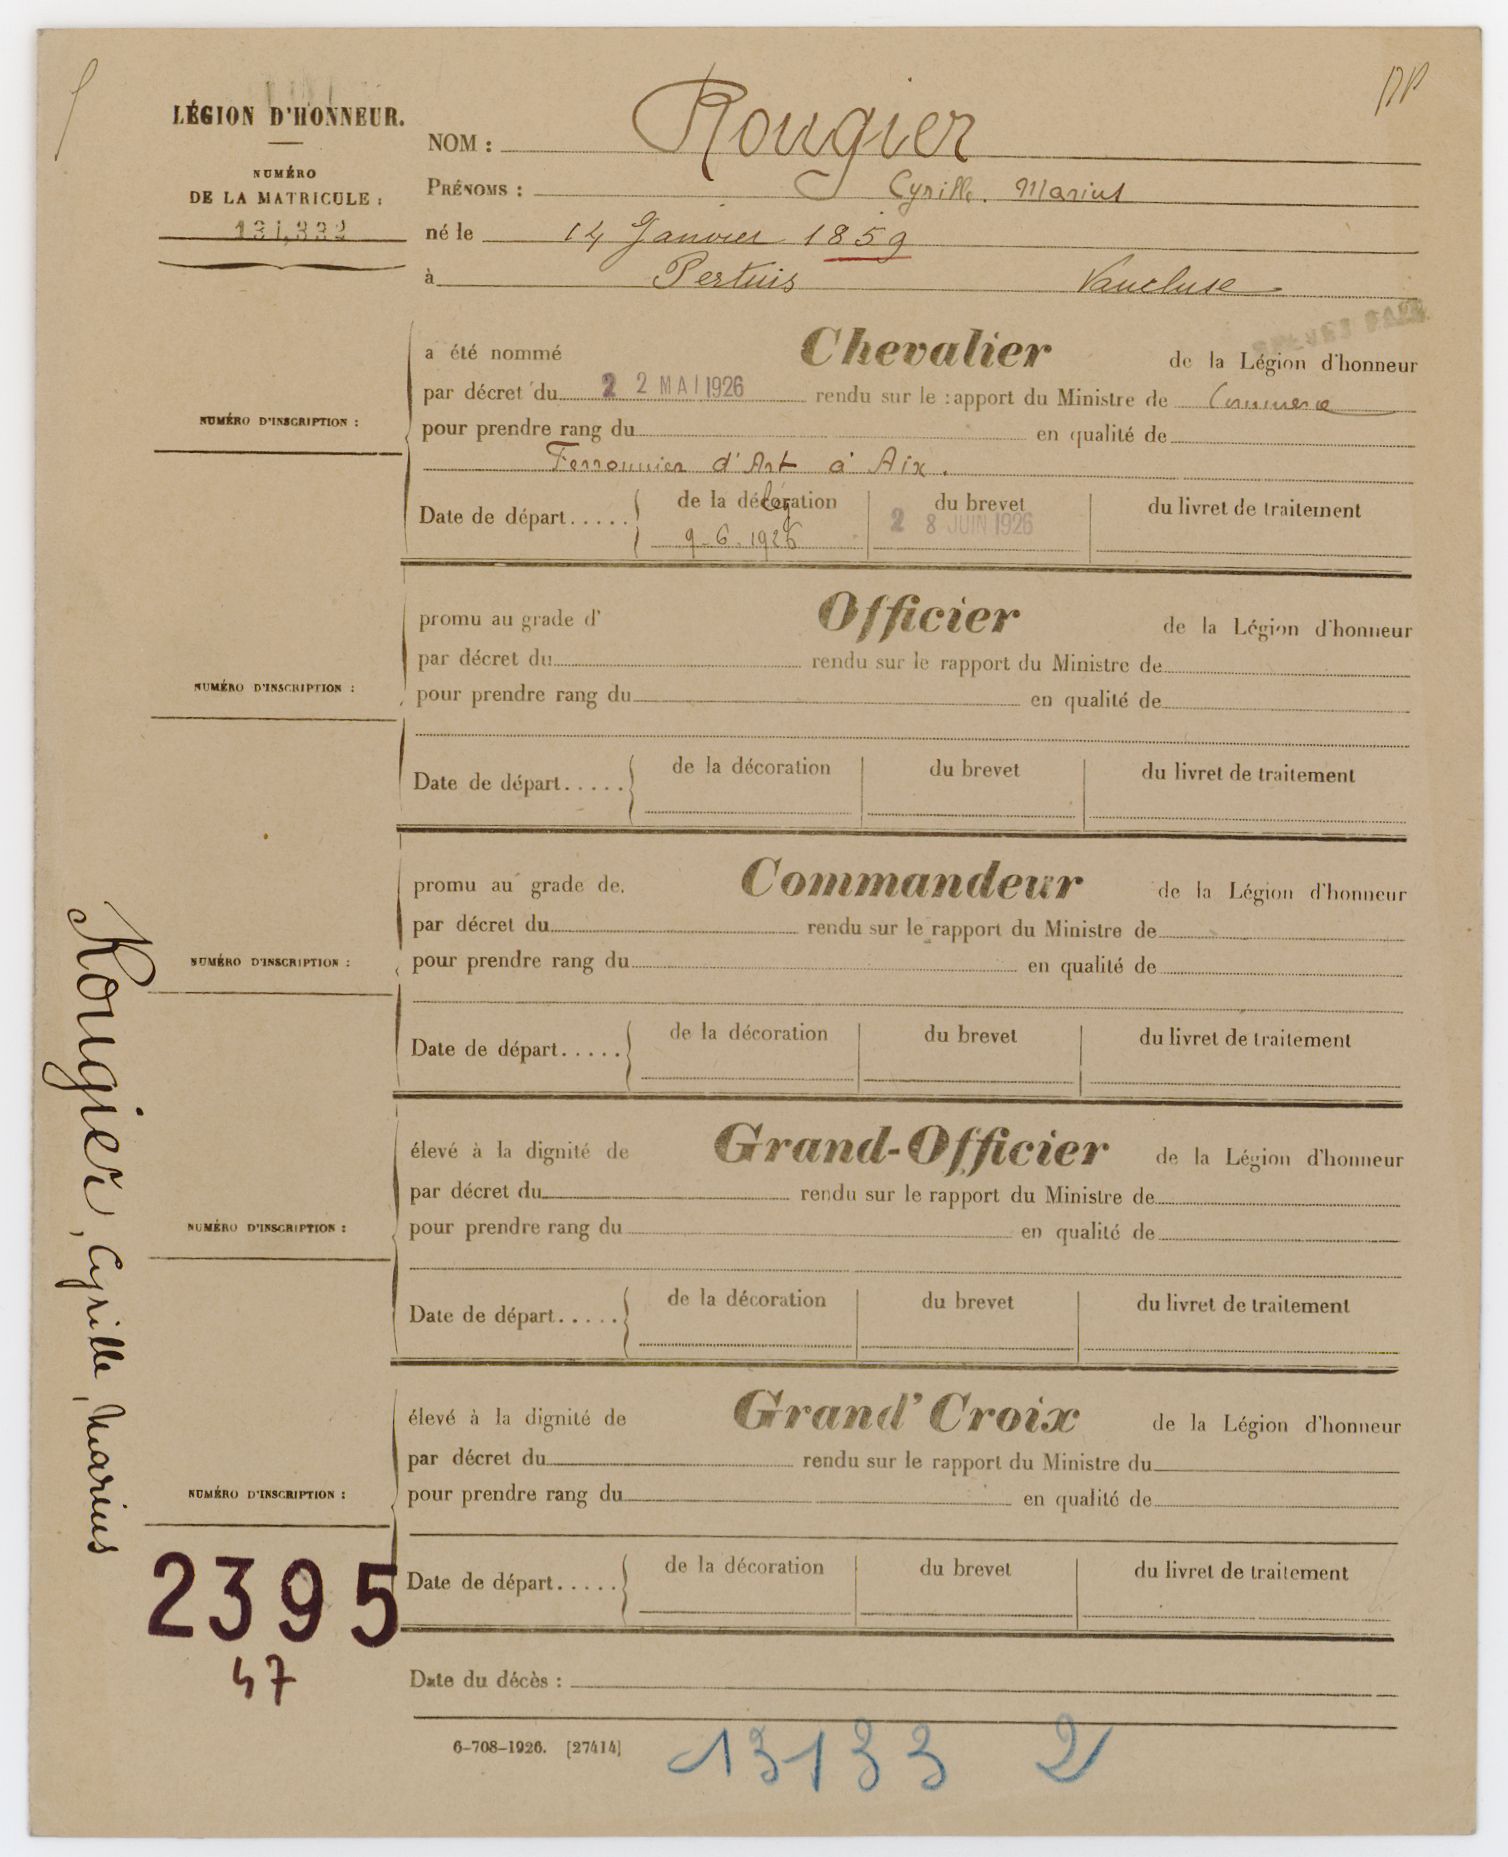 LÉGION D'HONNEUR.
NUMÉRO
DE LA MATRICULE :
131,332
NOM : Rougier
PRÉNOMS : Cyrille. Marius
né le 14 Janvier 1859
à Pertuis Vaucluse
NUMÉRO D'INSCRIPTION :
a été nommé Chevalier de la Légion d'honneur
par décret du 22 MAI 1926 rendu sur le rapport du Ministre de Commerce
pour prendre rang du en qualité de
Ferronnier d'Art à Aix.
Date de départ..... de la décoration du brevet du livret de traitement
9-6-1926 28 JUIN 1926
NUMÉRO D'INSCRIPTION :
promu au grade d' Officier de la Légion d'honneur
par décret du rendu sur le rapport du Ministre de
pour prendre rang du en qualité de
Date de départ..... de la décoration du brevet du livret de traitement
NUMÉRO D'INSCRIPTION :
promu au grade de. Commandeur de la Légion d'honneur
par décret du rendu sur le rapport du Ministre de
pour prendre rang du en qualité de
Date de départ..... de la décoration du brevet du livret de traitement
NUMÉRO D'INSCRIPTION :
élevé à la dignité de Grand-Officier de la Légion d'honneur
par décret du rendu sur le rapport du Ministre de
pour prendre rang du en qualité de
Date de départ..... de la décoration du brevet du livret de traitement
NUMÉRO D'INSCRIPTION :
élevé à la dignité de Grand'Croix de la Légion d'honneur
par décret du rendu sur le rapport du Ministre du
pour prendre rang du en qualité de
Date de départ..... de la décoration du brevet du livret de traitement
Date du décès :
6-708-1926. [27414]
13133 2
2395
47
Rougier, Cyrille, Marius